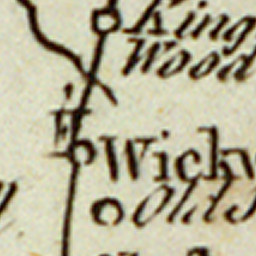 King
Wood
Wickw
Old S